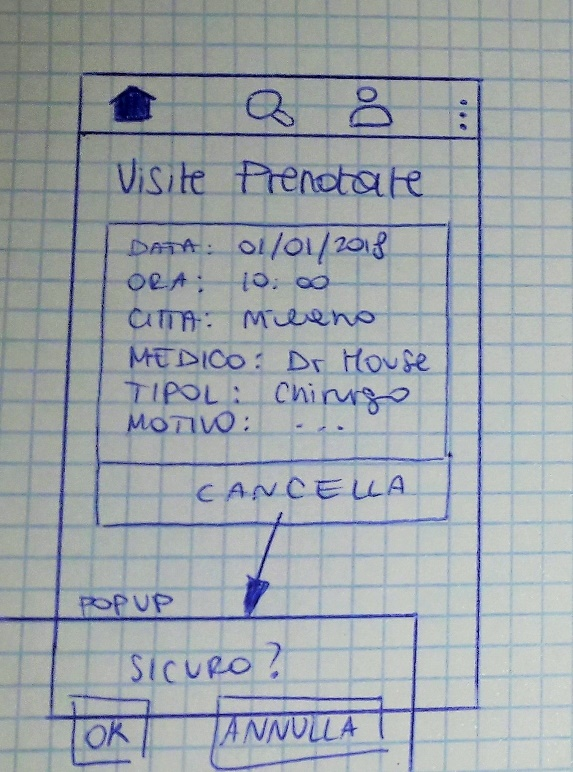 Visite Prenotate
DATA: 01/01/2018
ORA: 10:00
CITTA: Milano
MEDICO: Dr House
TIPOL: Chirurgo
MOTIVO: ...
CANCELLA
POPUP
SICURO?
OK ANNULLA